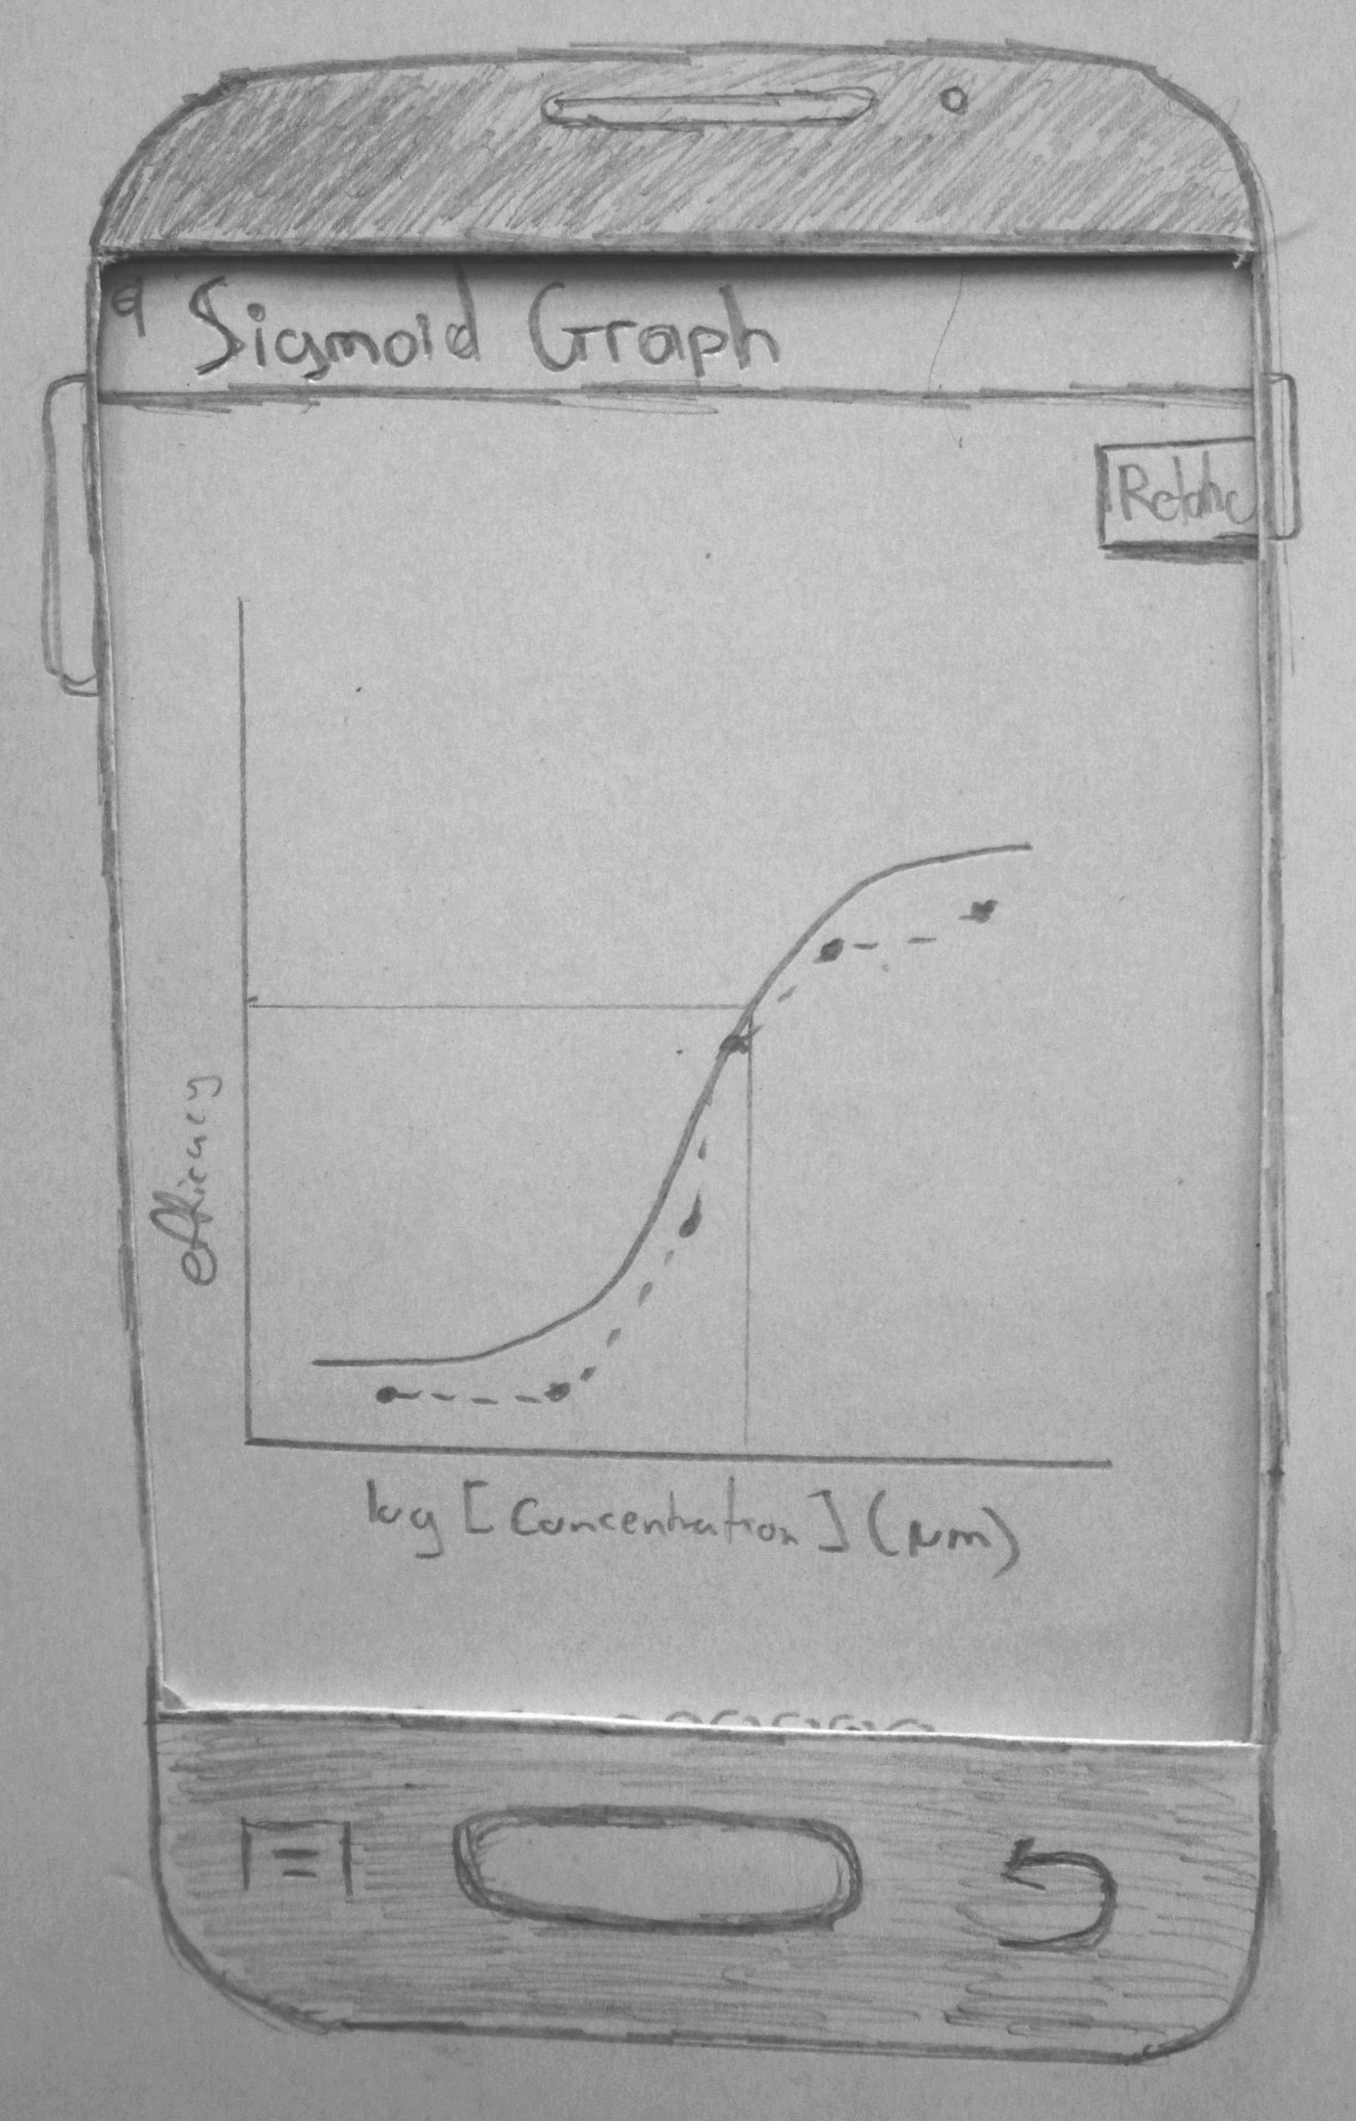 Sigmoid Graph
Rotate
efficacy
log [Concentration] (Nm)